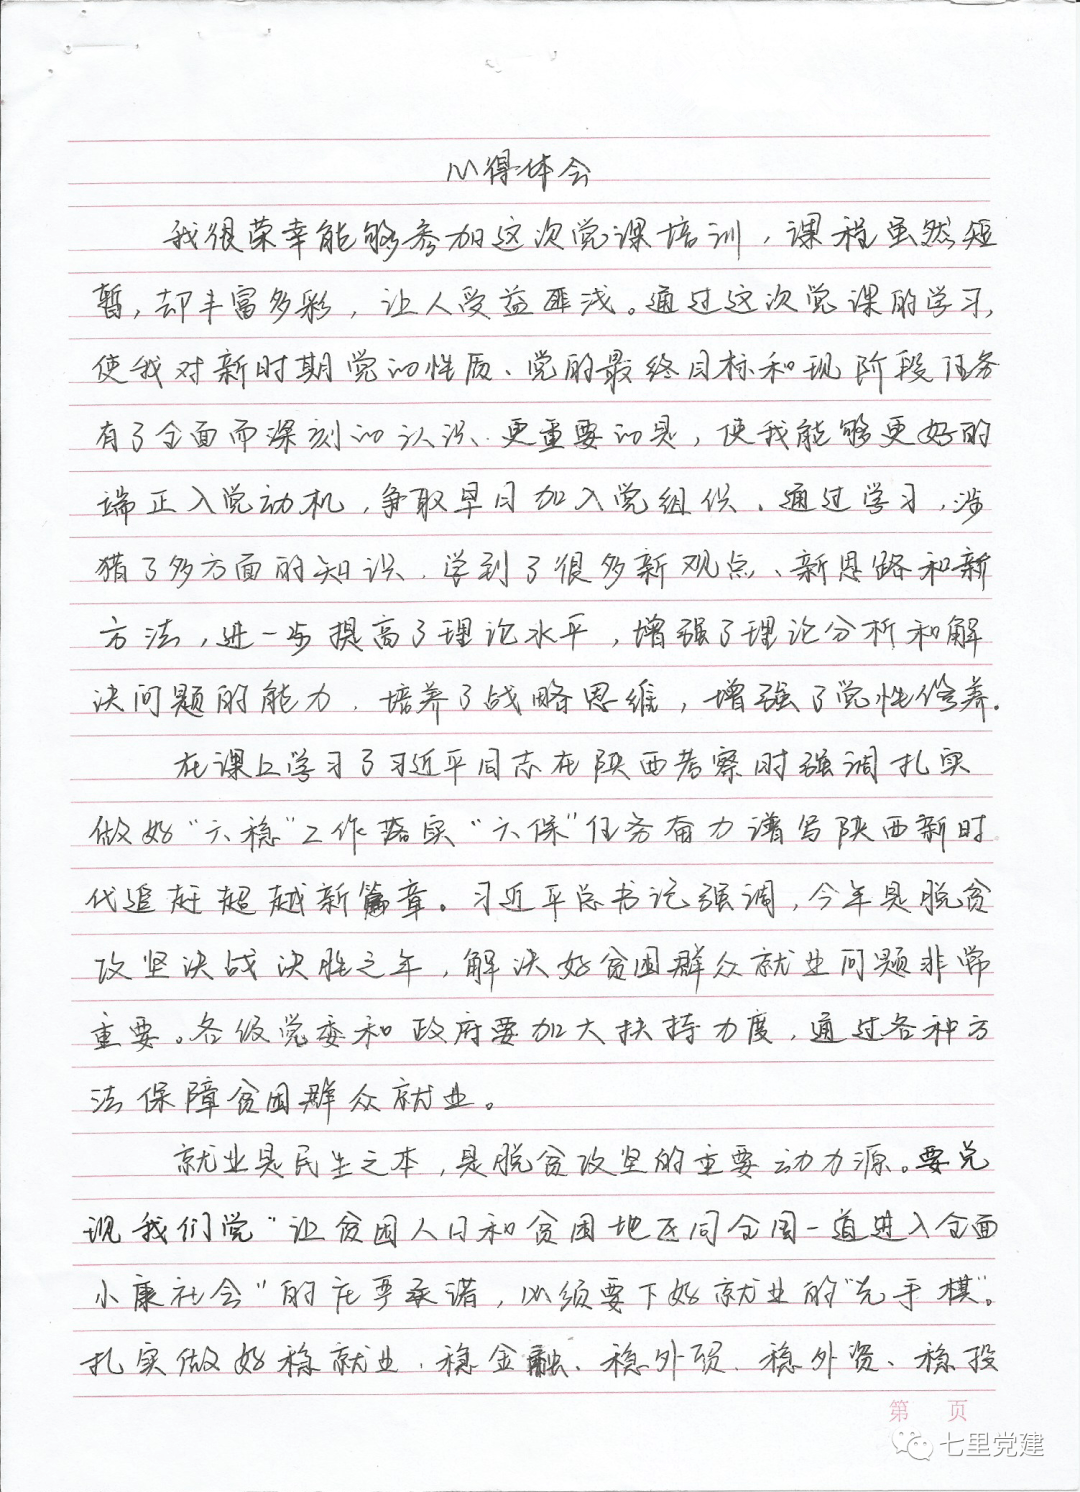 心得体会
我很荣幸能够参加这次党课培训，课程虽然短
暂，却丰富多彩，让人受益匪浅。通过这次党课的学习，
使我对新时期党的性质、党的最终目标和现阶段任务
有了全面而深刻的认识、更重要的是，使我能够更好的
端正入党动机，争取早日加入党组织。通过学习，涉
猎了多方面的知识，学到了很多新观点、新思路和新
方法，进一步提高了理论水平，增强了理论分析和解
决问题的能力，培养了战略思维，增强了党性修养。
在课上学习了习近平同志在陕西考察时强调扎实
做好“六稳”工作落实“六保”任务奋力谱写陕西新时
代追赶超越新篇章。习近平总书记强调，今年是脱贫
攻坚决战决胜之年，解决好贫困群众就业问题非常
重要。各级党委和政府要加大扶持力度，通过各种方
法保障贫困群众就业。
就业是民生之本，是脱贫攻坚的重要动力源。要兑
现我们党“让贫困人口和贫困地区同全国一道进入全面
小康社会”的庄严承诺，必须要下好就业的“先手棋”。
扎实做好稳就业、稳金融、稳外贸、稳外资、稳投
第 页
七里党建